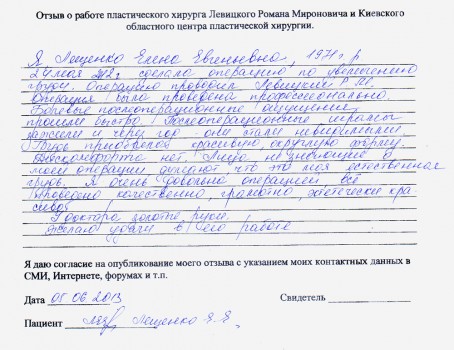 Отзыв о работе пластического хирурга Левицкого Романа Мироновича и Киевского
областного центра пластической хирургии.
Я, Лещенко Елена Евгеньевна, 1971 г.р
24 мая 2012г сделала операцию по увеличению
груди. Операцию проводил Левицкий Р.М.
Операция была проведена профессионально.
Болевые послеоперационные ощущения
прошли быстро. Послеоперационные шрамы
зажили и через год они стали невидимыми.
Грудь приобрела красивую, округлую форму.
Дискомфорта нет. Люди не знающие о
моей операции, думают что это моя естественная
грудь. Я очень довольна операцией всё
проведено качественно, грамотно, эстетически кра
сиво!
У доктора золотые руки
Желаю удачи в его работе
Я даю согласие на опубликование моего отзыва с указанием моих контактных данных в
СМИ, Интернете, форумах и т.п.
Дата 05.06.2013 Свидетель
Пациент Лещенко Е.Е.